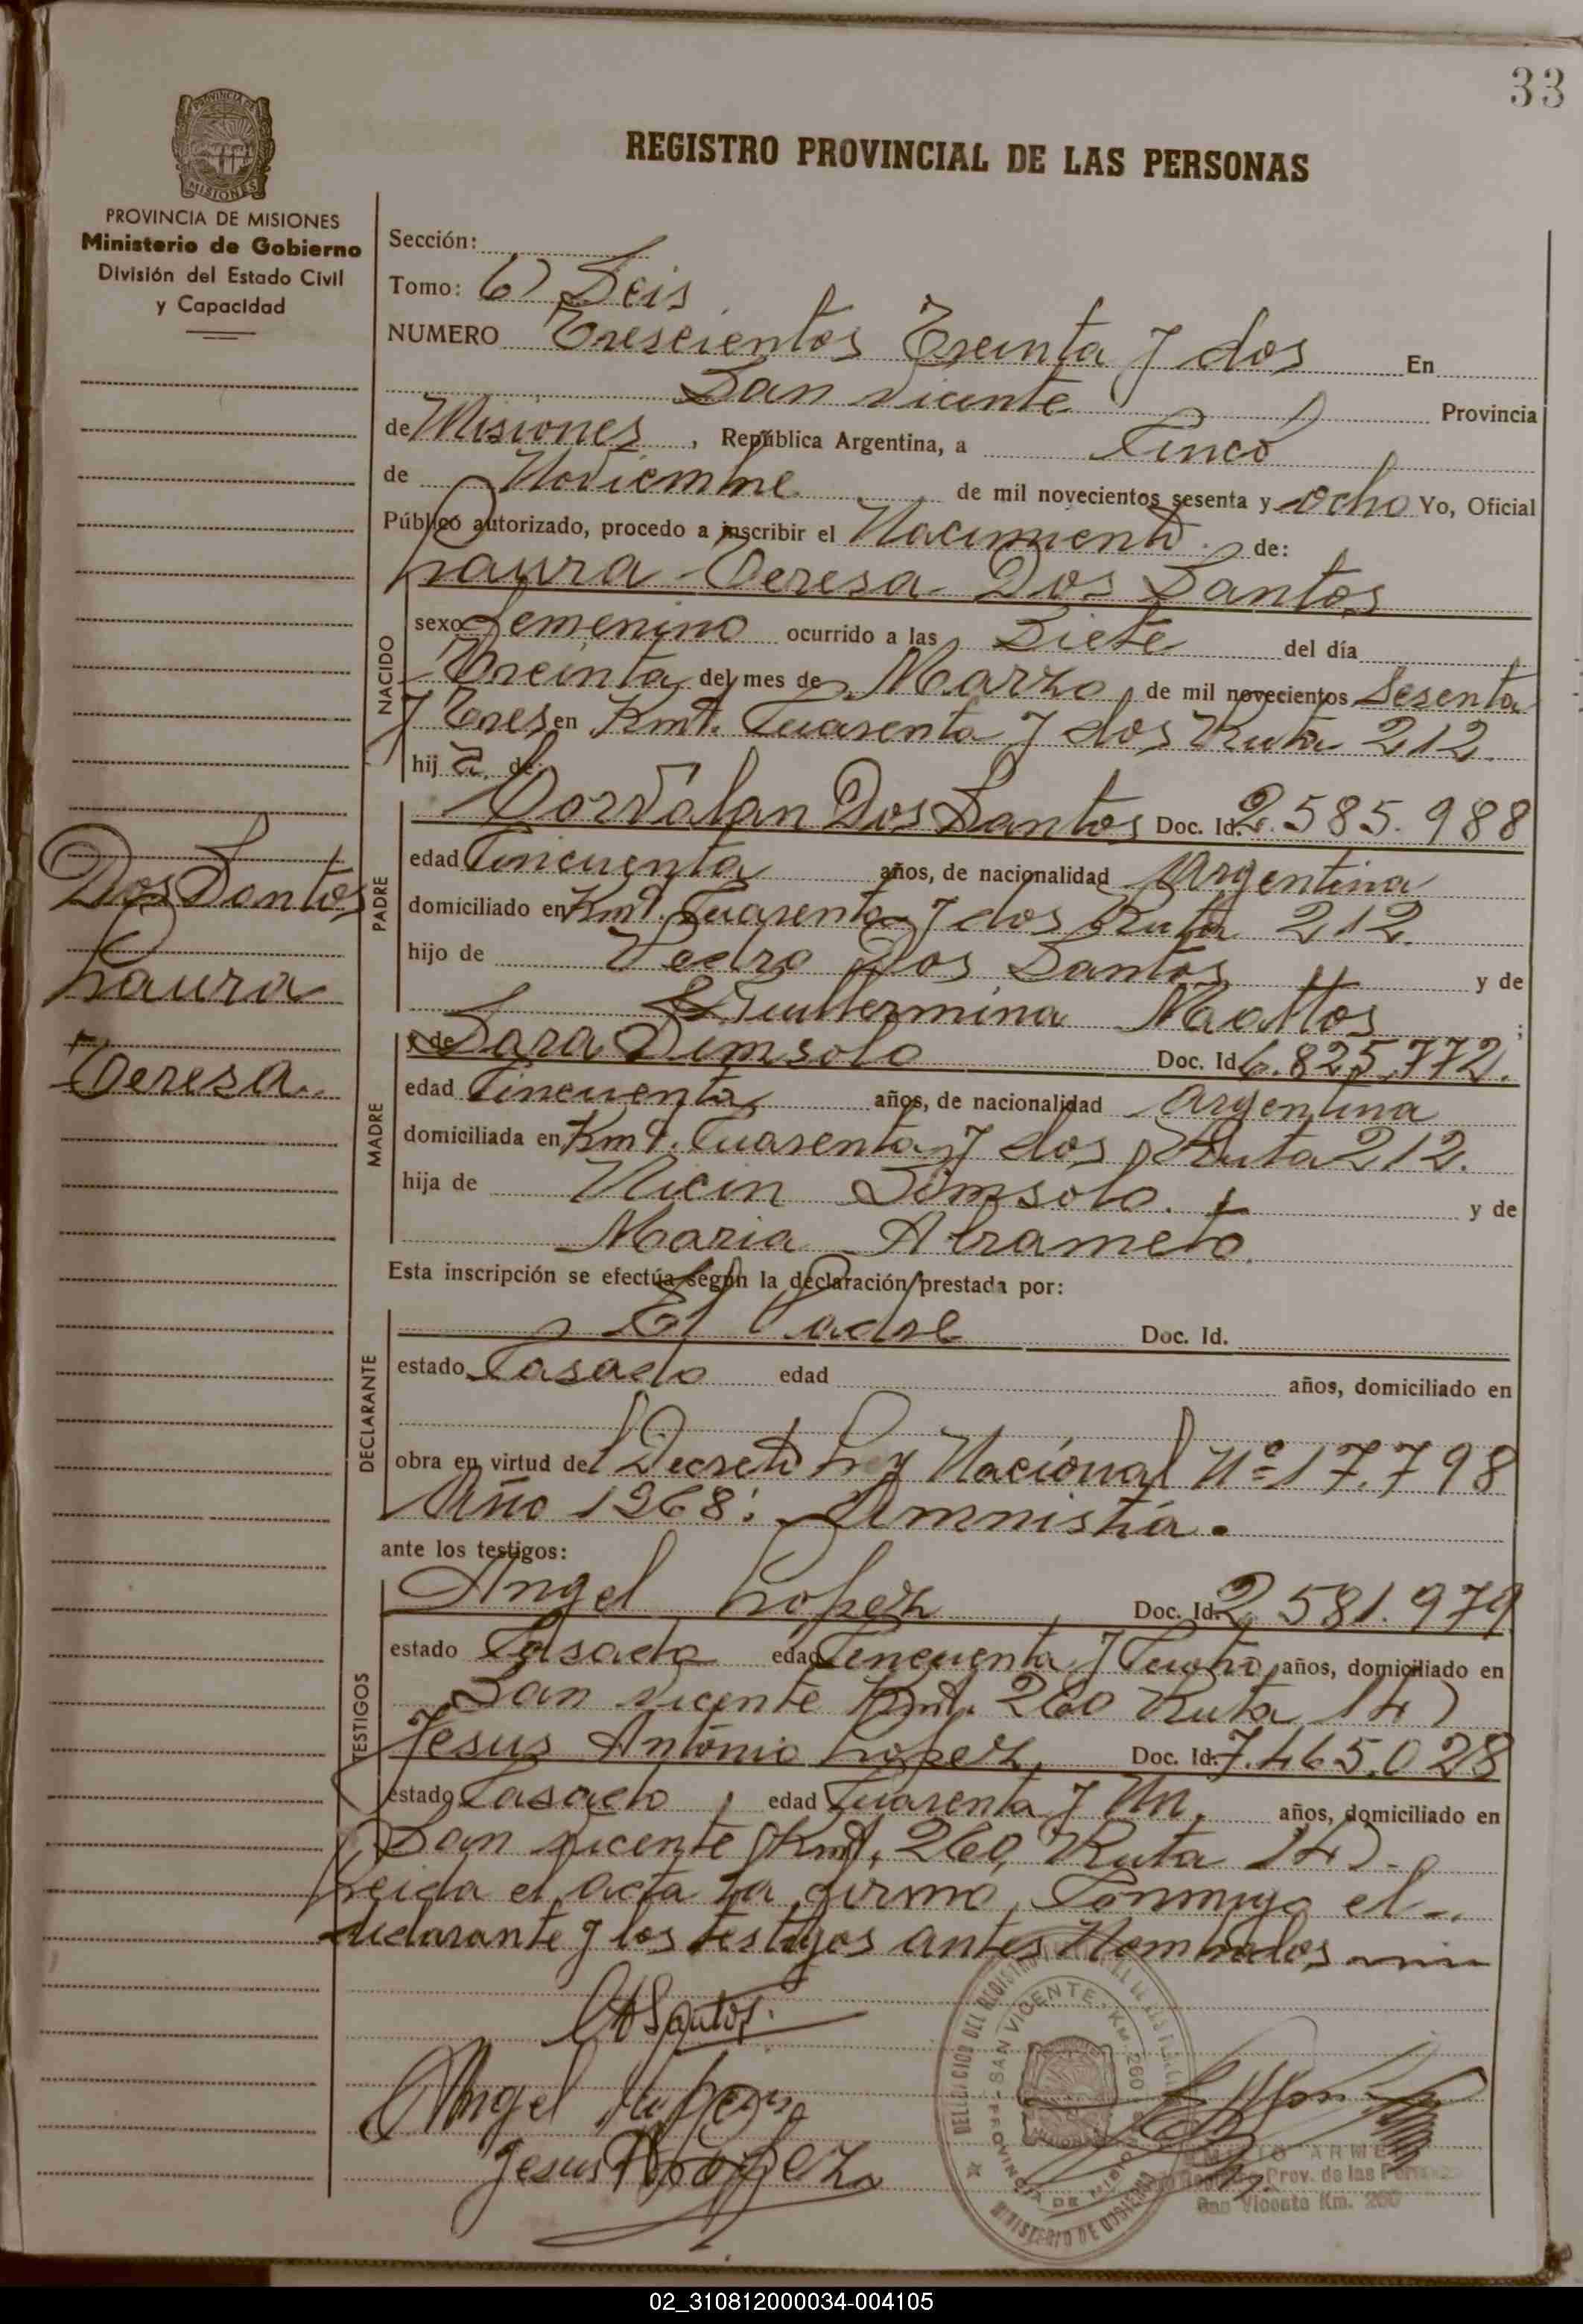 33
PROVINCIA DE
MISIONES
REGISTRO PROVINCIAL DE LAS PERSONAS
PROVINCIA DE MISIONES
Ministerio de Gobierno
División del Estado Civil
y Capacidad
Sección:
Tomo: 6) Seis
NUMERO Trescientos Treinta y dos En
San Vicente Provincia
de Misiones, República Argentina, a Cinco
de Noviembre de mil novecientos sesenta y ocho Yo, Oficial
Público autorizado, procedo a inscribir el Nacimiento de:
Laura Teresa Dos Santos
NACIDO
sexo femenino ocurrido a las Siete del día
Treinta del mes de Marzo de mil novecientos Sesenta
y Tres en Kmt. Cuarenta y dos Ruta 212.
hij a. de:
Dos Santos
Laura
Teresa.
PADRE
Dos Santos Doc. Id. 2.585.988
edad Cincuenta años, de nacionalidad Argentina
domiciliado en Kmt. Cuarenta y dos Ruta 212.
hijo de Pedro Dos Santos y de
Guillermina Mattos ;
MADRE
y de Sara Dimsolo Doc. Id 6.825.772.
edad Cincuenta años, de nacionalidad Argentina
domiciliada en Kmt. Cuarenta y dos Ruta 212.
hija de Dimsolo. y de
Maria Abrameto
Esta inscripción se efectúa según la declaración prestada por:
DECLARANTE
El Padre Doc. Id.
estado Casado edad años, domiciliado en
obra en virtud del Decreto Ley Nacional Nº 17.798
Año 1968: Amnistía.
ante los testigos:
TESTIGOS
Angel Lopez Doc. Id. 2.581.979
estado Casado edad Cincuenta y Cuatro años, domiciliado en
San Vicente Kmt. 260 Ruta 14)
Jesus Antonio Lopez, Doc. Id. 7.465.028
estado Casado, edad Cuarenta y Un. años, domiciliado en
San Vicente Kmt. 260, Ruta 14).
Leida el acta la firma Conmigo el
declarante y los testigos antes Nombrados
Santos.
Angel
Jesus Lopez
SAN VICENTE - KM. 260
PROVINCIA DE MISIONES
MINISTERIO DE GOBIERNO
Prov. de las
San Vicente Km. 260
02_310812000034-004105